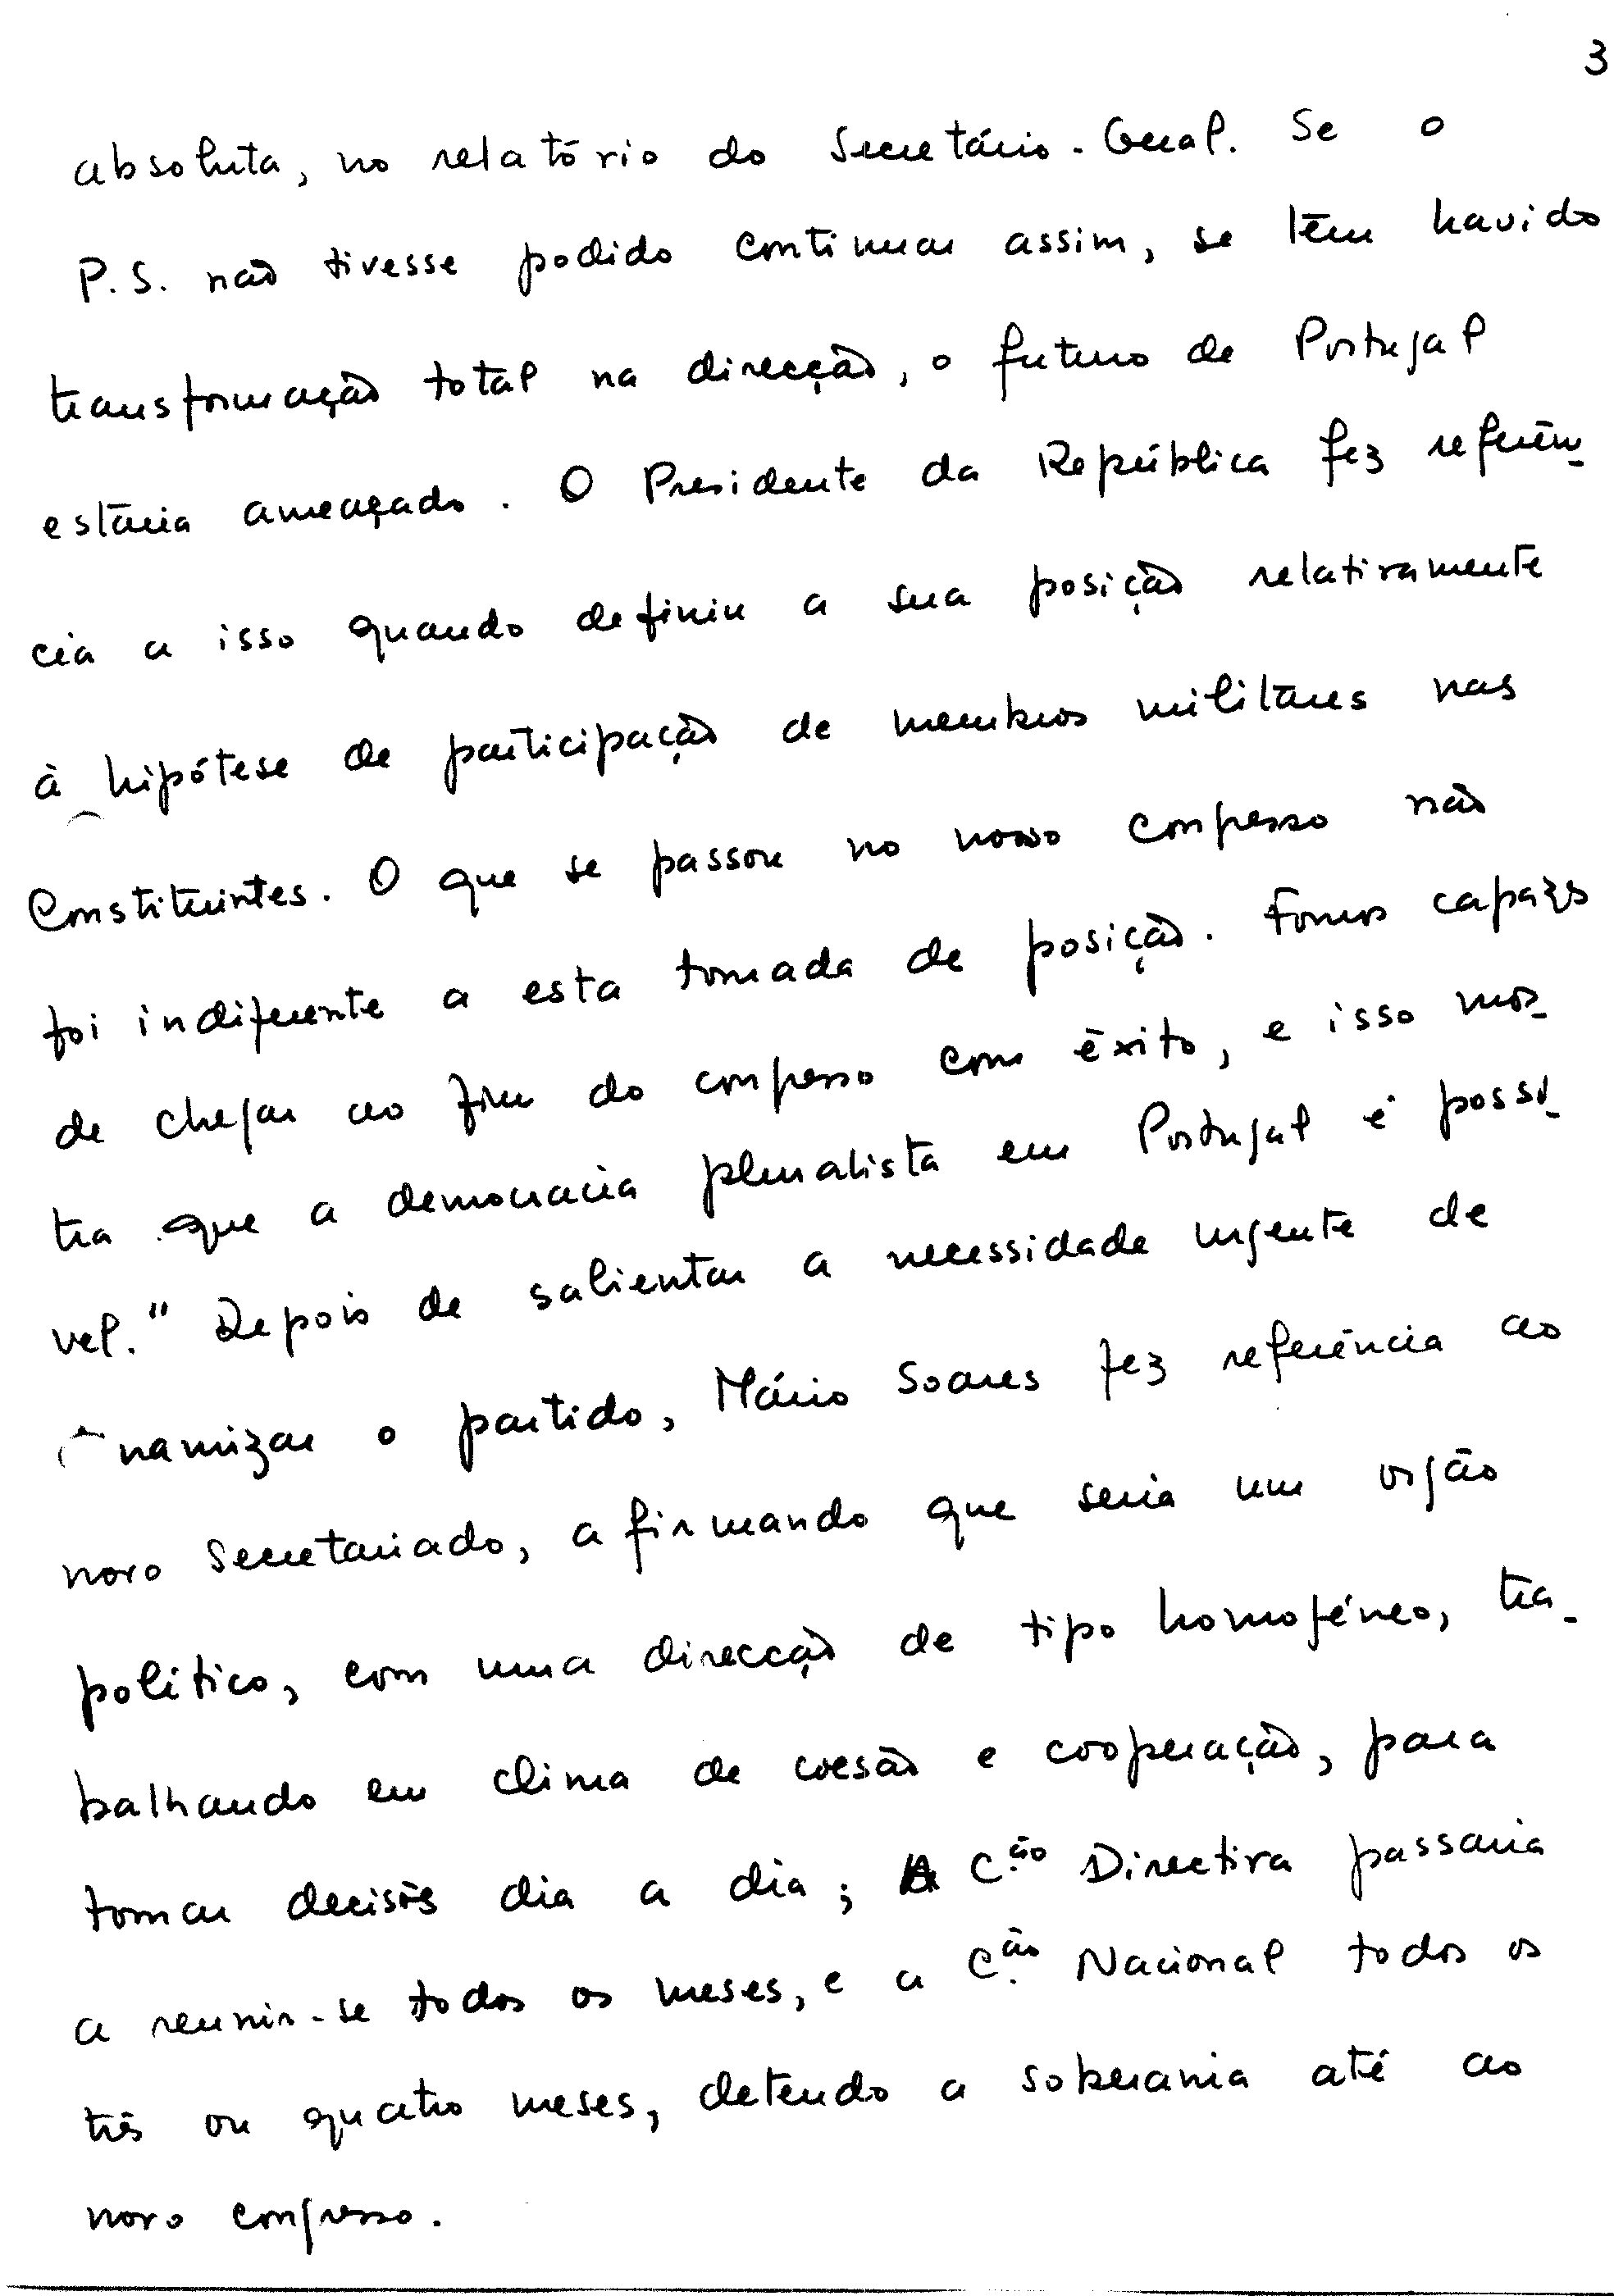 3
absoluta, no relatório do Secretário-Geral. Se o
P.S. não tivesse podido continuar assim, se têm havido
transformação total na direcção, o futuro de Portugal
estaria ameaçado. O Presidente da República fez referên-
cia a isso quando definiu a sua posição relativamente
à hipótese de participação de membros militares nas
Constituintes. O que se passou no nosso congresso não
foi indiferente a esta tomada de posição. Fomos capazes
de chegar ao fim do congresso com êxito, e isso mos-
tra que a democracia pluralista em Portugal é possí-
vel." Depois de salientar a necessidade urgente de
namizar o partido, Mário Soares fez referência ao
novo Secretariado, afirmando que seria um orgão
político, com uma direcção de tipo homogéneo, tra-
balhando em clima de coesão e cooperação, para
tomar decisões dia a dia; A C.ão Directiva passaria
a reunir-se todos os meses, e a C.ão Nacional todos os
três ou quatro meses, detendo a soberania até ao
novo congresso.